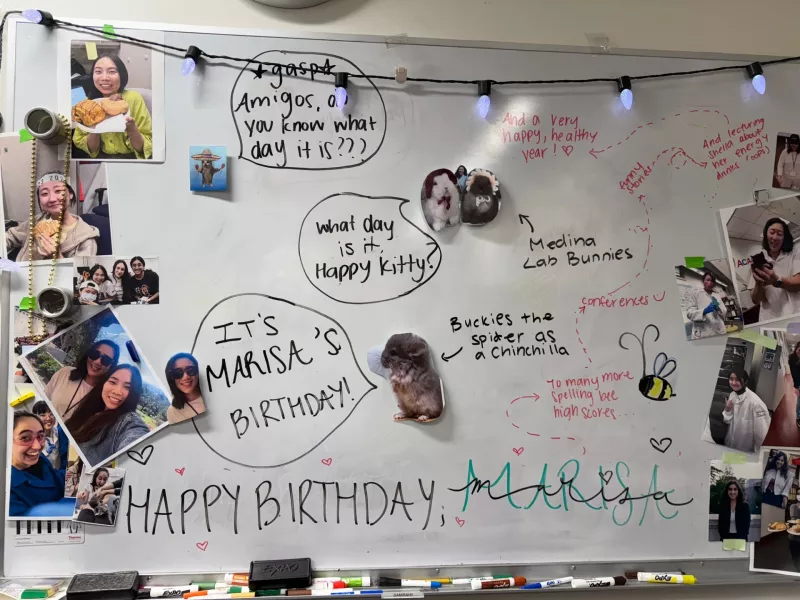 *gasp*
Amigos, do
you know what
day it is???
what day
is it,
Happy Kitty?
IT'S
MARISA'S
BIRTHDAY!
Medina
Lab Bunnies
Buckies the
spider as
a Chinchilla
To many more
spelling bee
high scores...
conferences
And lecturing
sheila about
her energy
drinks (oops)
And a very
happy, healthy
year!
HAPPY BIRTHDAY,
MARISA
marisa
EXPO
EXPO